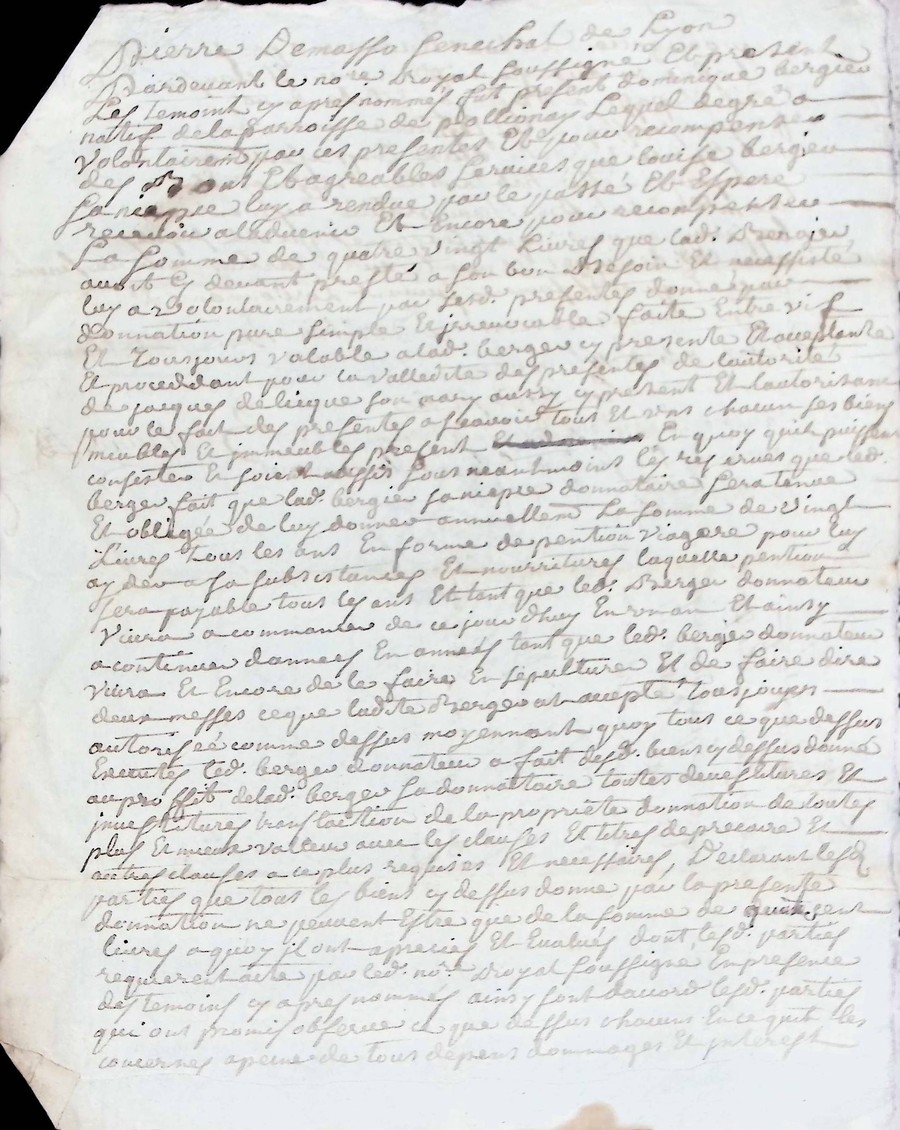 Pierre Demasso Senechal de Lyon
Pardevant le no.re Royal soussigné Et present
Les temoint cy apres nommés fut present dominique bergier
natif de la parroisse de Pollionay Lequel de gré a
volontairemt par ces presentes Et pour recompense
des Et agreables services que louise bergier
sa niepce luy a rendue par le passé Et Espere
recevoir a ladvenir Et Encore pour recompenser
La somme de quatre vingt Livres que lad. Bergier
avoit cy devant presté a son bon Besoin Et necessité
luy a volontairement par sesd. presentes donné par
donnation pure simple Et jrrevocable faite Entre vif
Et Tousjours valable a lad. berger cy presente Et acceptante
Et proceddant pour la valledite des presentes de lautorité
de jacques delicque son mary aussy cy present Et lautorisant
pour le fait des presentes a scavoir tous Et uns chacun ses biens
meubles Et jmmeubles present En quoy quil puissent
consister Et soient assis sous neantmoins les reserves que led.
berger fait que lad. bergier sa niepce donnataire sera tenue
Et obligée de luy donner annuellemt La somme de vingt
Livres tous les ans En forme de pention viagere pour luy
ayder a sa subsistances Et nourritures laquelle pention
sera payable tous les ans Et tant que led. Berger donnateur
vivra a commancer de ce jour dhuy En un an Et ainsy
a continuer dannees En annés tant que led. berger donnateur
vivra Et Encore de le faire En sepulture Et de faire dire
deux messes ce que ladite Berger at accepté tousjours
autoriseé comme dessus moyennant quoy tous ce que dessus
Executés led. berger donnateur a fait desd. biens cy dessus donné
au proffit de lad. berger sa donnataire toutes devestitures Et
jnvestitures translaction de la propriete donnation de toutes
plus Et mieux valleur avec les clauses Et titres de precaire Et
autres clauses a ce plus requises Et necessaires, Declarant lesd
parties que tous les biens cy dessus donne par la presente
donnation ne peuvent Estre que de la somme de cent
livres a quoy jl ont apreciés Et Evalués dont lesd. parties
requierent acte par led. no.re Royal soussigné En presence
des temoins cy apres nommés ainsy sont d'accord lesd. parties
qui ont promis observer ce que dessus chacuns En ce quil les
concernes a peine de tous depens dommages Et interest